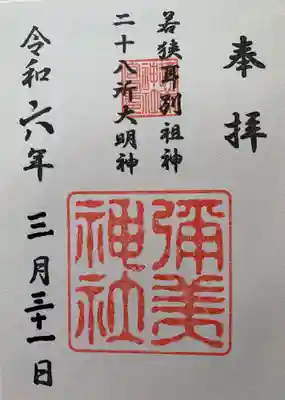 奉拝
若狭耳別祖神
二十八所大明神
彌美神社
令和六年 三月三十一日